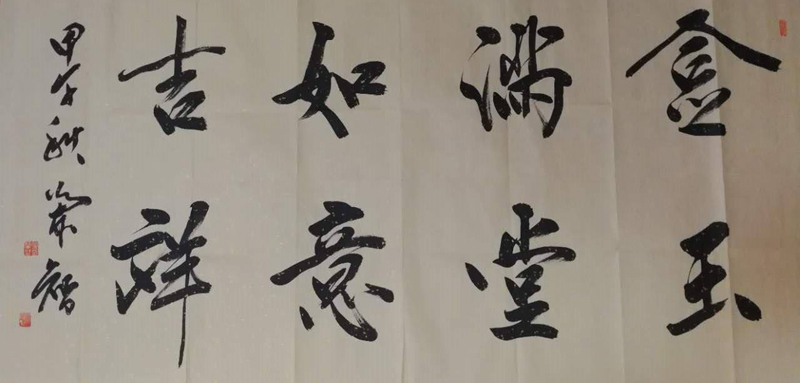 金玉
满堂
如意
吉祥
甲午秋